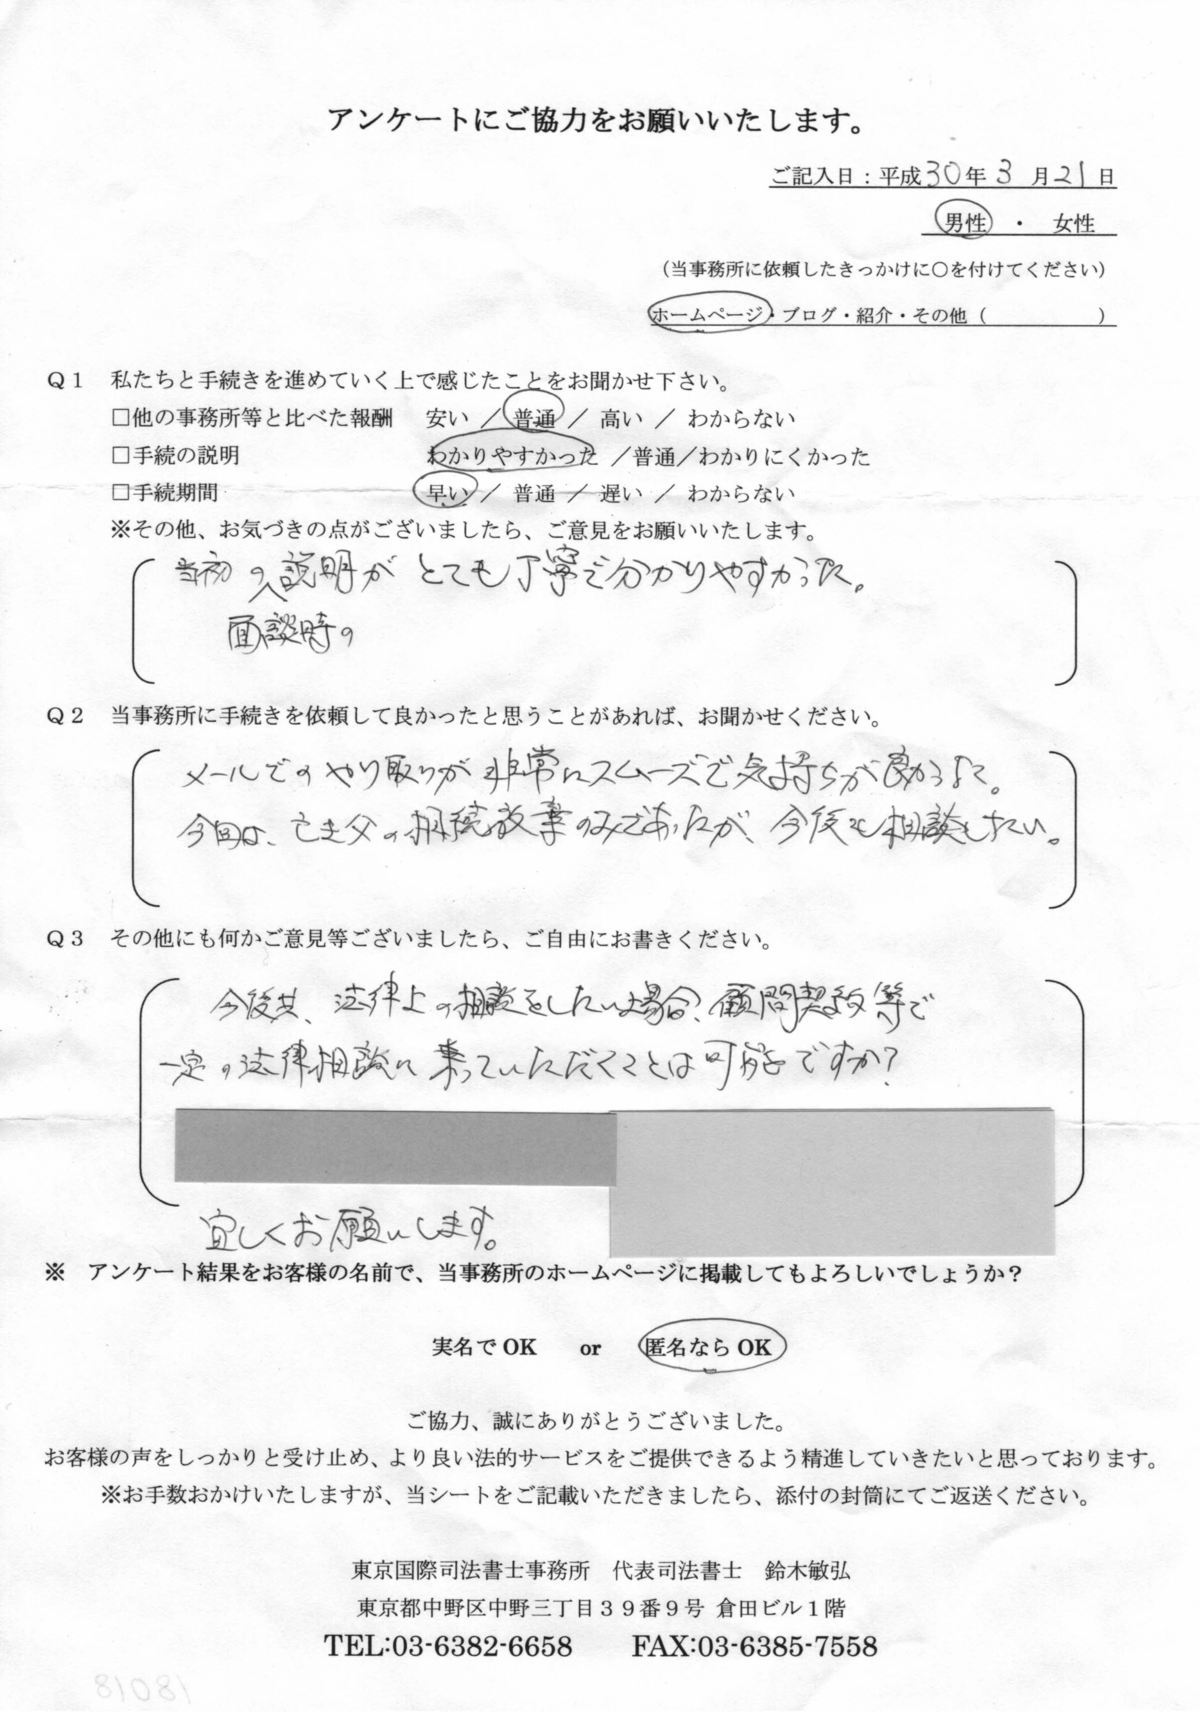 アンケートにご協力をお願いいたします。
ご記入日：平成30年3月21日
男性 ・ 女性
（当事務所に依頼したきっかけに○を付けてください）
ホームページ・ブログ・紹介・その他（ ）
Q1 私たちと手続きを進めていく上で感じたことをお聞かせ下さい。
□他の事務所等と比べた報酬 安い ／ 普通 ／ 高い ／ わからない
□手続の説明 わかりやすかった ／普通／わかりにくかった
□手続期間 早い ／ 普通 ／ 遅い ／ わからない
※その他、お気づきの点がございましたら、ご意見をお願いいたします。
当初の説明がとても丁寧で分かりやすかった。
面談時の
Q2 当事務所に手続きを依頼して良かったと思うことがあれば、お聞かせください。
メールでのやり取りが非常にスムーズで気持ちが良かった。
今回は、亡き父の相続放棄のみであったが、今後も相談したい。
Q3 その他にも何かご意見等ございましたら、ご自由にお書きください。
今後共、法律上の相談をしたい場合、顧問契約等で
一定の法律相談に乗っていただくことは可能ですか？
宜しくお願いします。
※ アンケート結果をお客様の名前で、当事務所のホームページに掲載してもよろしいでしょうか？
実名でOK or 匿名ならOK
ご協力、誠にありがとうございました。
お客様の声をしっかりと受け止め、より良い法的サービスをご提供できるよう精進していきたいと思っております。
※お手数おかけいたしますが、当シートをご記載いただきましたら、添付の封筒にてご返送ください。
東京国際司法書士事務所 代表司法書士 鈴木敏弘
東京都中野区中野三丁目３９番９号 倉田ビル１階
TEL:03-6382-6658 FAX:03-6385-7558